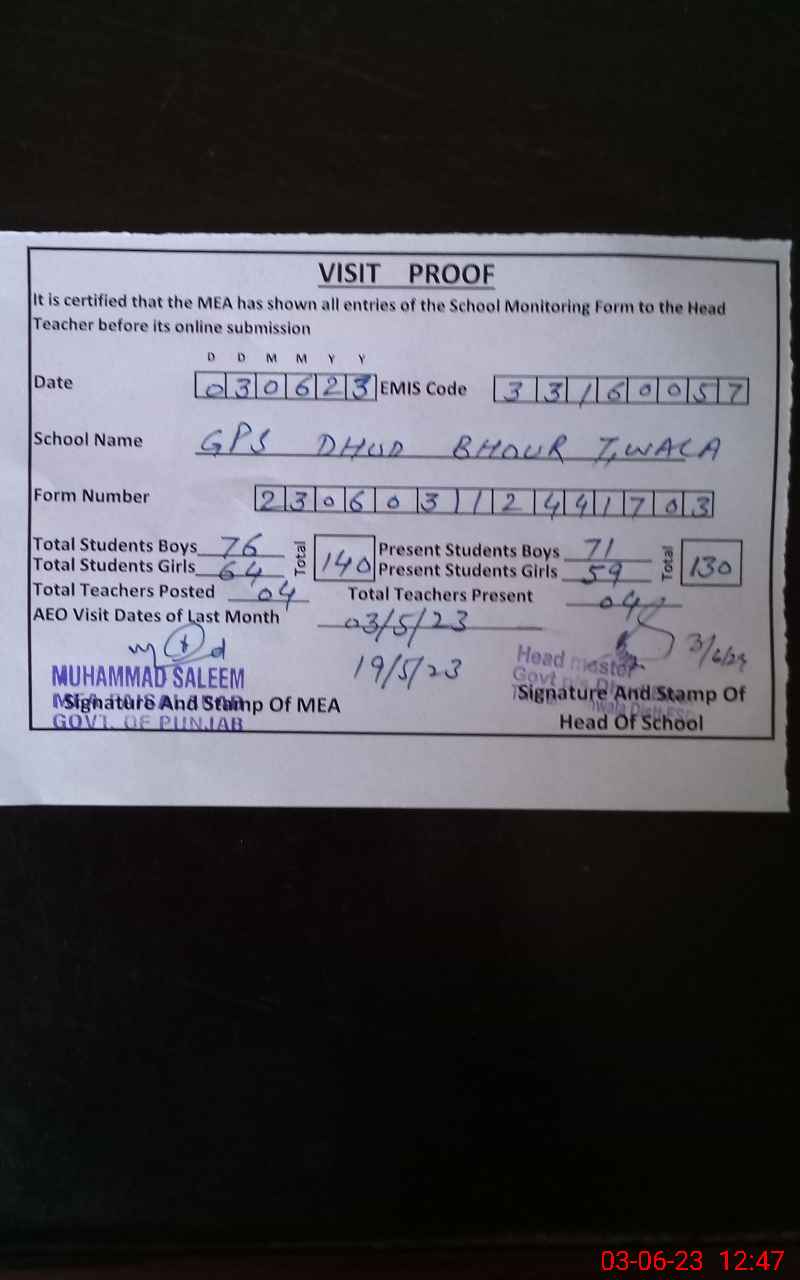 VISIT PROOF
It is certified that the MEA has shown all entries of the School Monitoring Form to the Head
Teacher before its online submission
D D M M Y Y
Date 030623 EMIS Code 33160057
School Name GPS DHUD BHOUR T,WALA
Form Number 230603112441703
Total Students Boys 76 Total 140 Present Students Boys 71 Total 130
Total Students Girls 64 Present Students Girls 59
Total Teachers Posted 04 Total Teachers Present 04
AEO Visit Dates of Last Month 03/5/23
19/5/23
MUHAMMAD SALEEM
Signature And Stamp Of MEA
GOVT. OF PUNJAB
Head master
Govt
Signature And Stamp Of
Head Of School
03-06-23 12:47